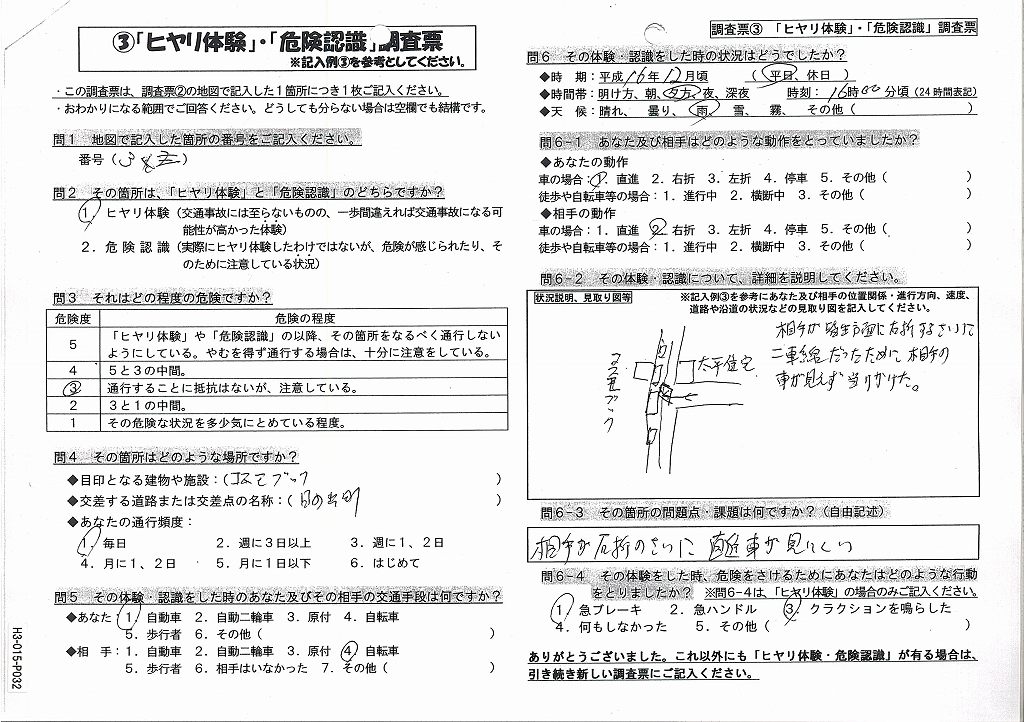 ③「ヒヤリ体験」・「危険認識」調査票
※記入例③を参考としてください。
・この調査票は、調査票②の地図で記入した1箇所につき1枚ご記入ください。
・おわかりになる範囲でご回答ください。どうしても分らない場合は空欄でも結構です。
問1 地図で記入した箇所の番号をご記入ください。
番号(3 )
問2 その箇所は、「ヒヤリ体験」と「危険認識」のどちらですか?
1. ヒヤリ体験(交通事故には至らないものの、一歩間違えれば交通事故になる可
能性が高かった体験)
2. 危険認識(実際にヒヤリ体験したわけではないが、危険が感じられたり、そ
のために注意している状況)
問3 それはどの程度の危険ですか?
危険度 危険の程度
5 「ヒヤリ体験」や「危険認識」の以降、その箇所をなるべく通行しない
ようにしている。やむを得ず通行する場合は、十分に注意をしている。
4 5と3の中間。
③ 通行することに抵抗はないが、注意している。
2 3と1の中間。
1 その危険な状況を多少気にとめている程度。
問4 その箇所はどのような場所ですか?
◆目印となる建物や施設:(コスモブック )
◆交差する道路または交差点の名称:( )
◆あなたの通行頻度:
1. 毎日 2. 週に3日以上 3. 週に1、2日
4. 月に1、2日 5. 月に1日以下 6. はじめて
問5 その体験・認識をした時のあなた及びその相手の交通手段は何ですか?
◆あなた:1. 自動車 2. 自動二輪車 3. 原付 4. 自転車
5. 歩行者 6. その他( )
◆相 手:1. 自動車 2. 自動二輪車 3. 原付 ④ 自転車
5. 歩行者 6. 相手はいなかった 7. その他( )
H3-015-P032
調査票③ 「ヒヤリ体験」・「危険認識」調査票
問6 その体験・認識をした時の状況はどうでしたか?
◆時 期:平成16年12月頃 (平日、休日)
◆時間帯:明け方、朝、夕方、夜、深夜 時刻:16時00分頃(24時間表記)
◆天 候:晴れ、 曇り、 雨、 雪、 霧、 その他( )
問6-1 あなた及び相手はどのような動作をとっていましたか?
◆あなたの動作
車の場合:1. 直進 2. 右折 3. 左折 4. 停車 5. その他( )
徒歩や自転車等の場合:1. 進行中 2. 横断中 3. その他( )
◆相手の動作
車の場合:1. 直進 2. 右折 3. 左折 4. 停車 5. その他( )
徒歩や自転車等の場合:1. 進行中 2. 横断中 3. その他( )
問6-2 その体験・認識について、詳細を説明してください。
状況説明、見取り図等 ※記入例③を参考にあなた及び相手の位置関係・進行方向、速度、
道路や沿道の状況などの見取り図を記入してください。
相手が 方面に右折するさいに
二車線だったために相手の
車が見えず当りかけた。
コスモブック
太平住宅
問6-3 その箇所の問題点・課題は何ですか?(自由記述)
相手が右折のさいに 直進車が見にくい
問6-4 その体験をした時、危険をさけるためにあなたはどのような行動
をとりましたか? ※問6-4は、「ヒヤリ体験」の場合のみご記入ください。
1. 急ブレーキ 2. 急ハンドル 3. クラクションを鳴らした
4. 何もしなかった 5. その他( )
ありがとうございました。これ以外にも「ヒヤリ体験・危険認識」が有る場合は、
引き続き新しい調査票にご記入ください。